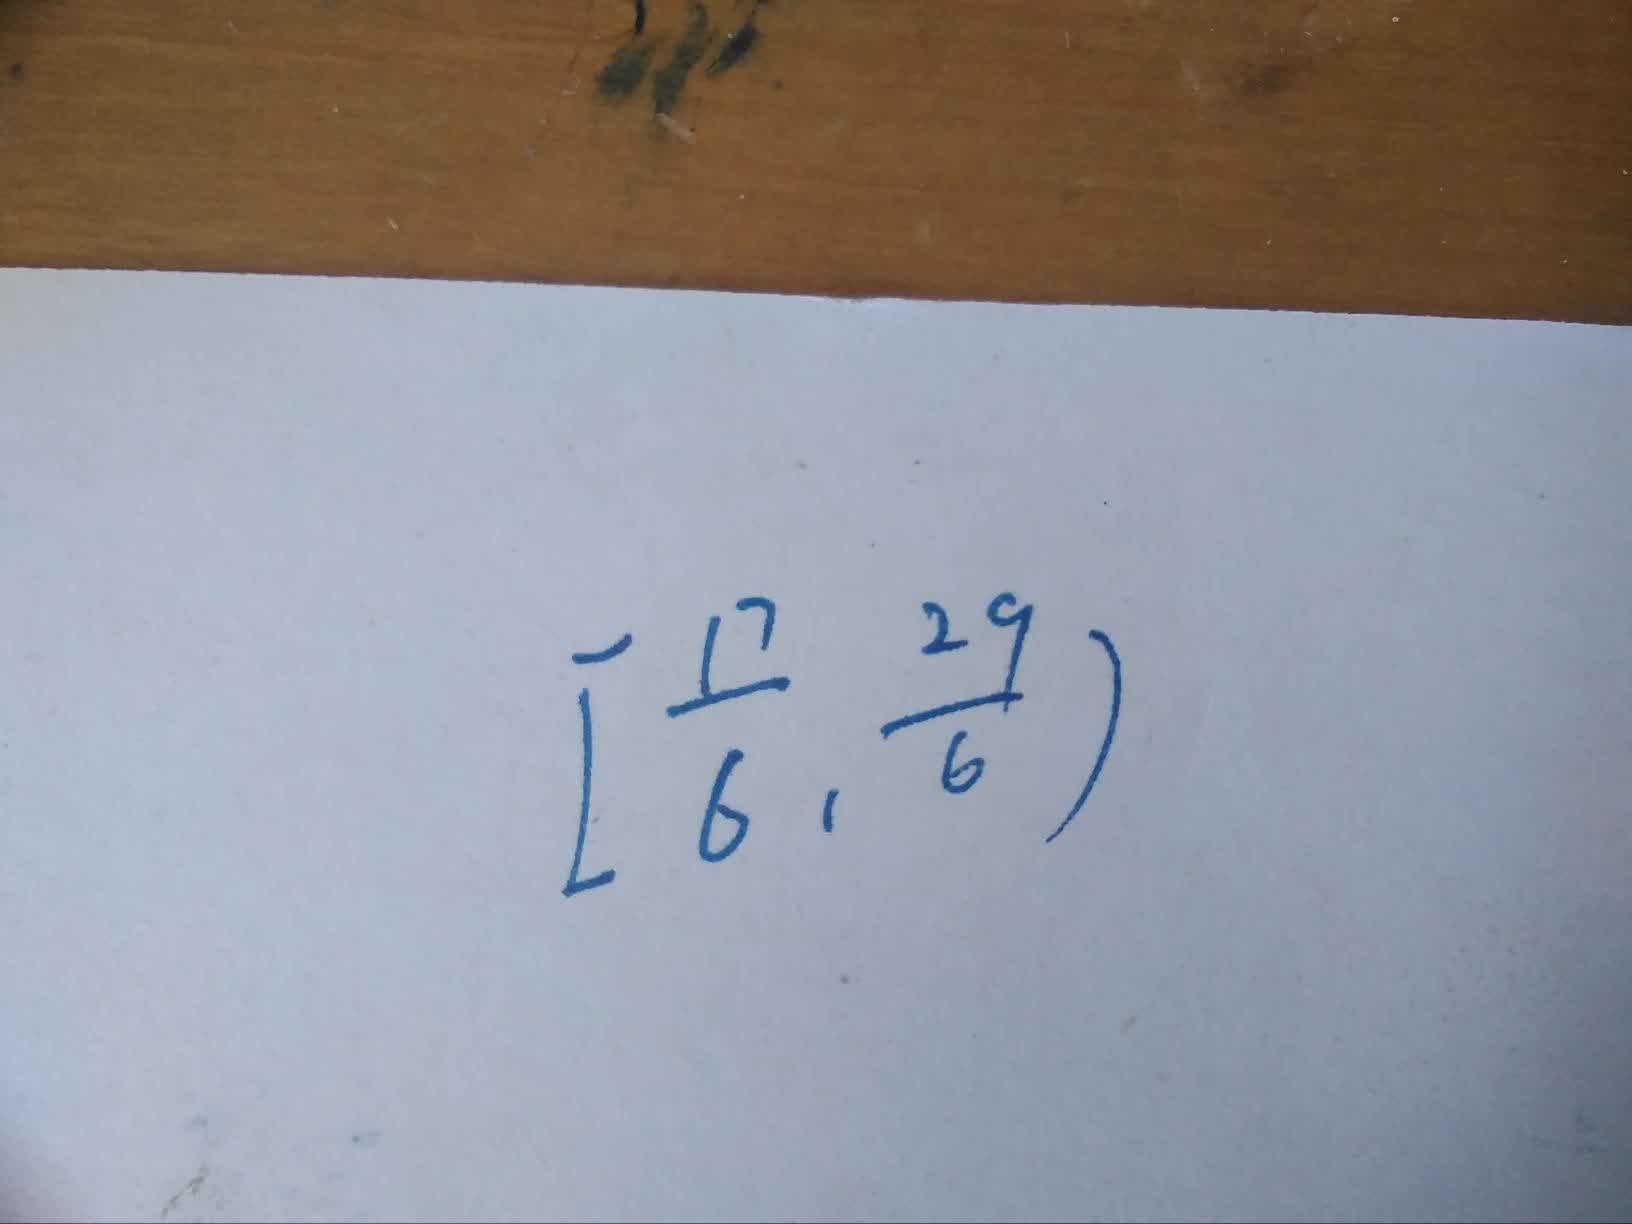 [17/6, 29/6)